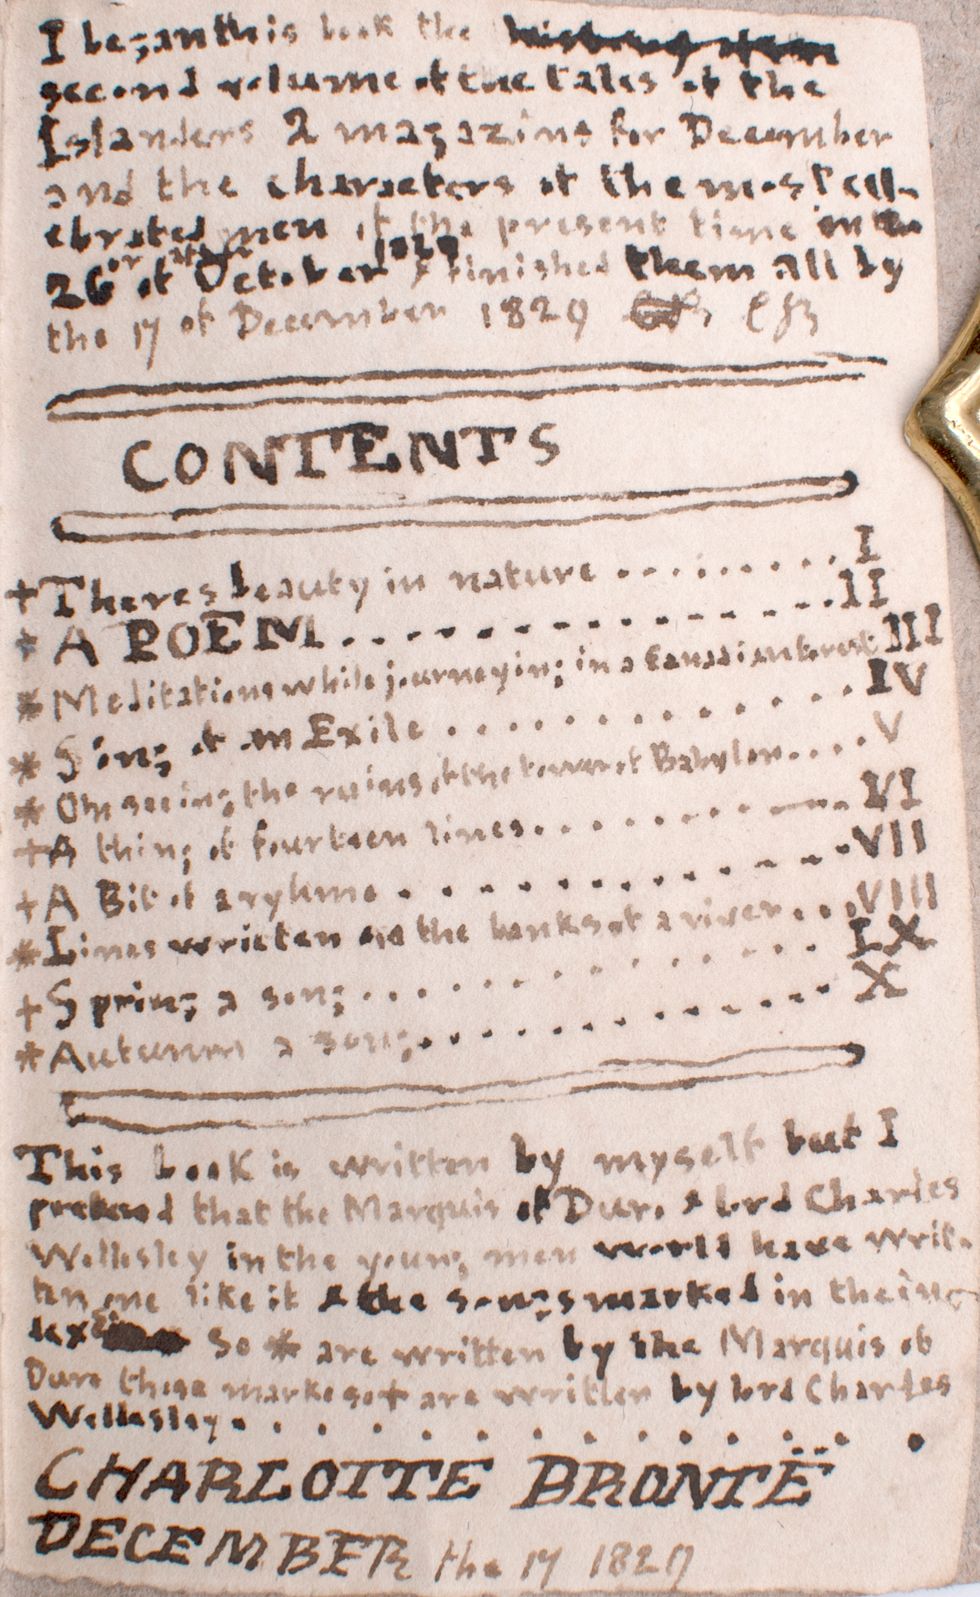 I began this book the
second volume of the tales of the
Islanders 2 magazines for December
and the characters of the most cel-
ebrated men of the present time on the
26 of October 1829 & finished them all by
the 17 of December 1829 CB
CONTENTS
+ Theres beauty in nature ......... I
* A POEM .............. II
* Meditations while journeying in a Canadian forest III
* Song of an Exile ............ IV
* On seeing the ruins of the tower of Babylon .... V
+ A thing of fourteen lines ............ VI
+ A Bit of a ryhme ............ VII
* Lines written on the banks of a river ... VIII
+ Spring a song ............ IX
* Autumn a song ............ X
This book is written by myself but I
pretend that the Marquis of Duro & lord Charles
Wellesley in the young men world have writ-
ten one like it & the songs marked in the in-
dex so * are written by the Marquis of
Duro those marke so + are written by lord Charles
Wellesley ............
CHARLOTTE BRONTË
DECEMBER the 17 1829